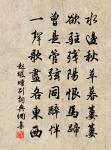 水邊秋草暮萋萋
欲駐殘陽恨馬蹄
曾是管絃同醉伴
一聲歌盡各東西
趙嘏贈別詩典網集